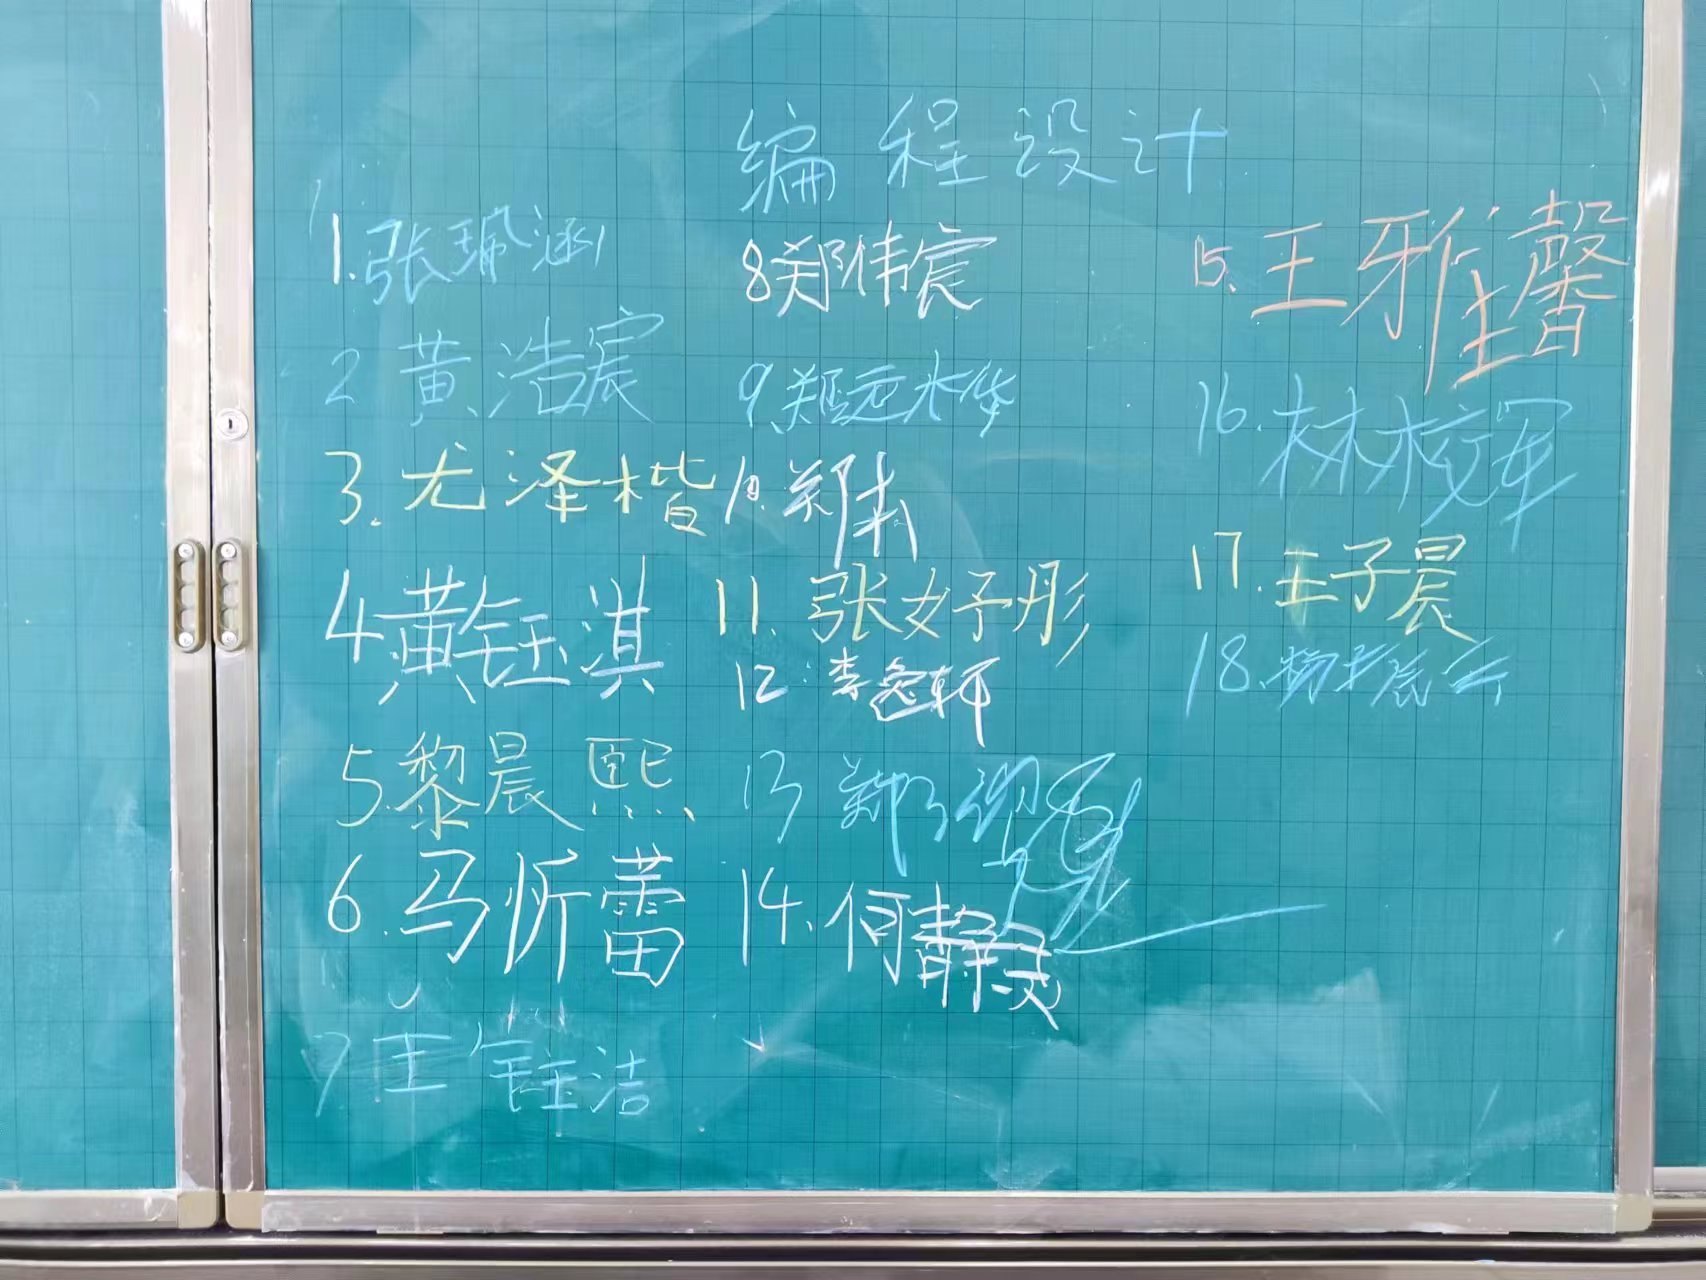 编程设计
1.张珮涵
2 黄浩宸
3.尤泽楷
4黄钰淇
5.黎晨熙
6.马忻蕾
7王钰洁
8郑伟宸
9.郑
10.郑杰
11.张好彤
12.李逸轩
13 郑
14.何静灵
15.王雅馨
16.林校军
17.王子晨
18.杨